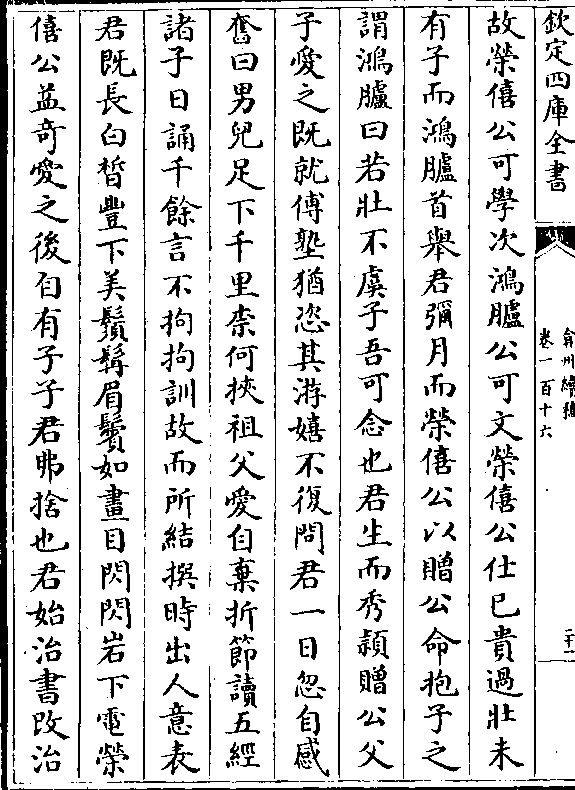 欽定四庫全書
弇州續稿
卷一百十六
二十一
故榮僖公可學次鴻臚公可文榮僖公仕已貴過壯未
有子而鴻臚首舉君彌月而榮僖公以贈公命抱子之
謂鴻臚曰若壯不虞子吾可念也君生而秀穎贈公父
子愛之既就傅塾猶恣其游嬉不復問君一日忽自感
奮曰男兒足下千里柰何挾祖父愛自棄折節讀五經
諸子日誦千餘言不拘拘訓故而所結撰時出人意表
君既長白皙豐下美鬚髯眉鬢如畫目閃閃岩下電榮
僖公益奇愛之後自有子子君弗捨也君始治書改治